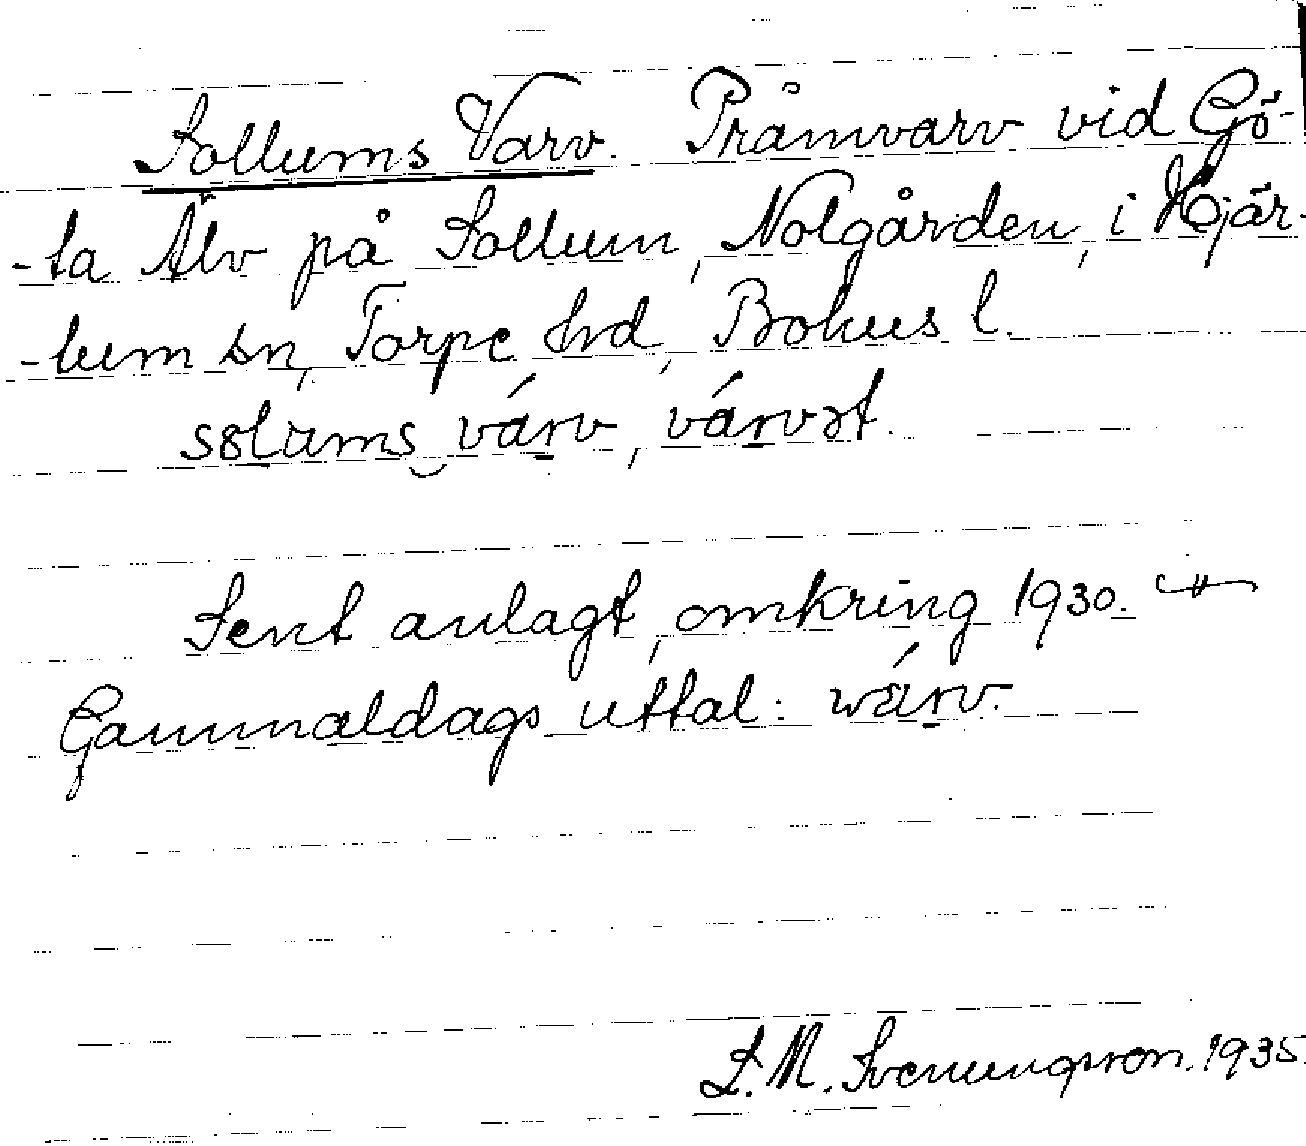 Sollums Varv. Pråmvarv vid Gö-
-ta Älv på Sollum, Nolgården, i Hjär-
-tum sn, Torpe hrd, Bohus l.
sólums várv, várvət.
Sent anlagt, omkring 1930.
Gammaldags uttal: wárv.
S. M. Svenungsson. 1935.